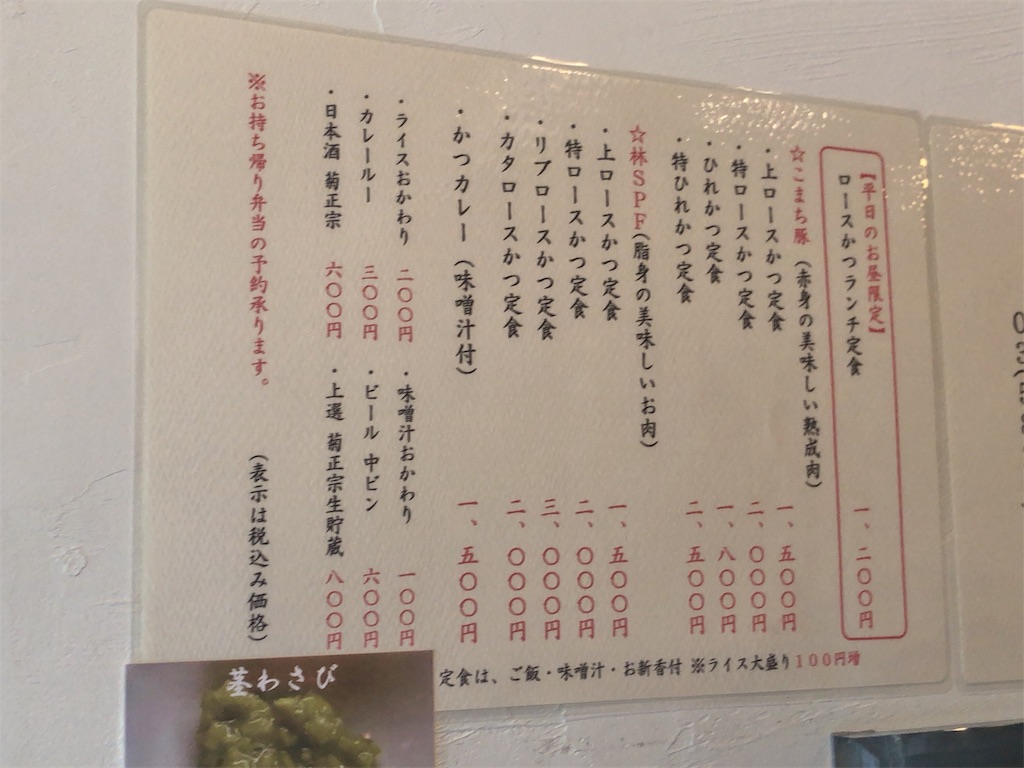 【平日のお昼限定】
ロースかつランチ定食 一、二〇〇円
☆こまち豚（赤身の美味しい熟成肉）
・上ロースかつ定食 一、五〇〇円
・特ロースかつ定食 二、〇〇〇円
・ひれかつ定食 一、八〇〇円
・特ひれかつ定食 二、五〇〇円
☆林SPF（脂身の美味しいお肉）
・上ロースかつ定食 一、五〇〇円
・特ロースかつ定食 二、〇〇〇円
・リブロースかつ定食 三、〇〇〇円
・カタロースかつ定食 二、〇〇〇円
・かつカレー（味噌汁付） 一、五〇〇円
・ライスおかわり 二〇〇円 ・味噌汁おかわり 一〇〇円
・カレールー 三〇〇円 ・ビール 中ビン 六〇〇円
・日本酒 菊正宗 六〇〇円 ・上選 菊正宗生貯蔵 八〇〇円
※お持ち帰り弁当の予約承ります。 （表示は税込み価格）
定食は、ご飯・味噌汁・お新香付 ※ライス大盛り100円増
茎わさび